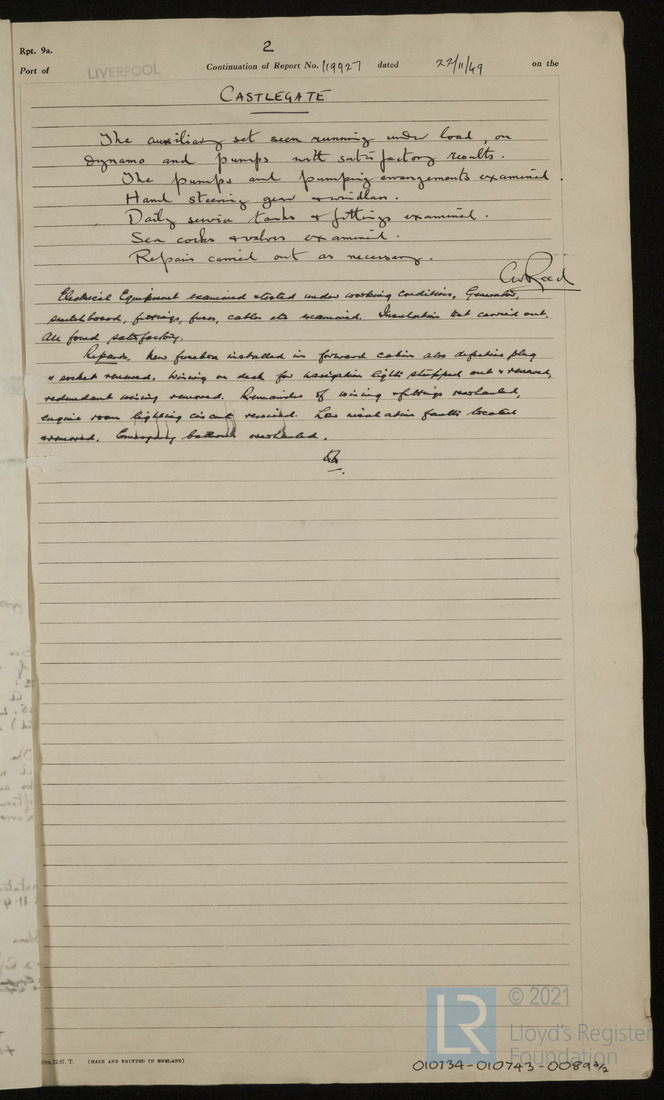 Rpt. 9a.
2
Port of LIVERPOOL Continuation of Report No. 119927 dated 22/11/49 on the
CASTLEGATE
The auxiliary set seen running under load, on
dynamo and pumps with satisfactory results.
The pumps and pumping arrangements examined.
Hand steering gear & windlass.
Daily service tanks & fittings examined.
Sea cocks & valves examined.
Repairs carried out as necessary.
Electrical Equipment examined & tested under working conditions, Generator,
switchboard, fittings, fuses, cables etc examined. Insulation test carried out.
All found satisfactory.
Repairs. New fusebox installed in forward cabin also defective plug
& socket renewed. Wiring on deck for navigation lights stripped out & renewed,
redundant wiring removed. Remainder of wiring & fittings overhauled,
engine room lighting circuit rewired. Low insulation faults located
& removed. Emergency batteries overhauled.
(MADE AND PRINTED IN ENGLAND)
LR
© 2021
Lloyd's Register
Foundation
010734-010743-0089 2/2